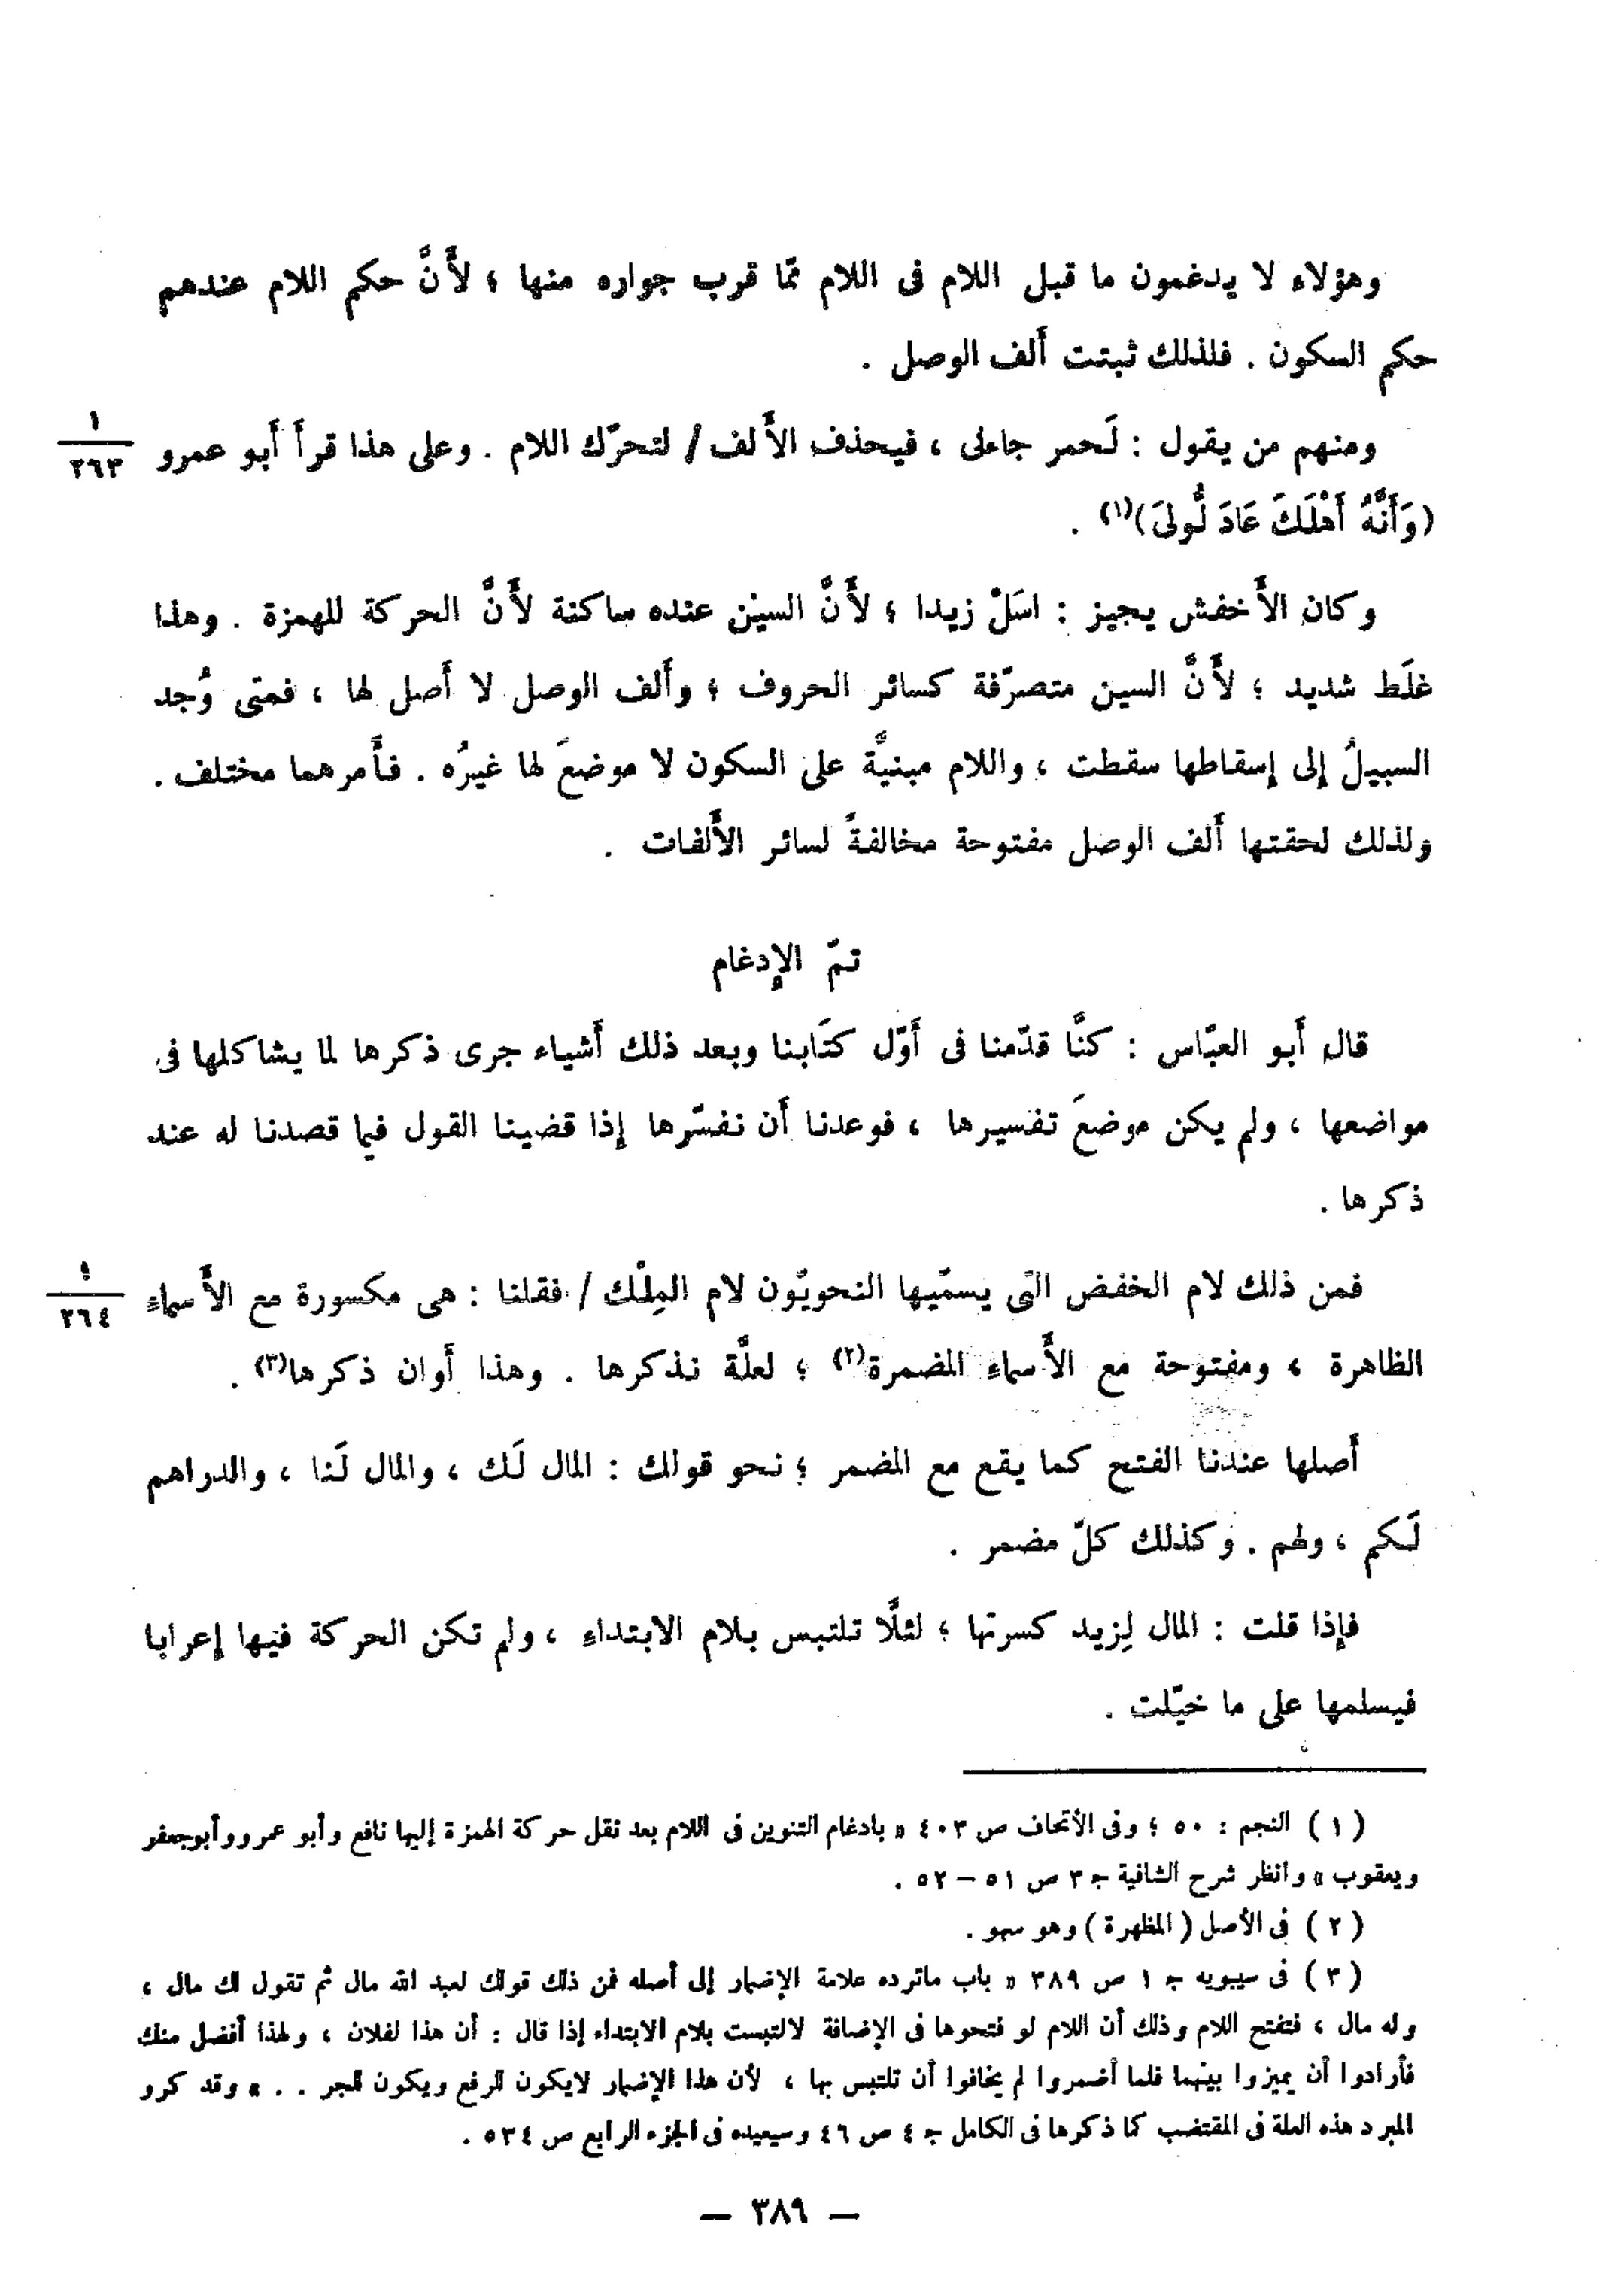 وهؤلاء لا يدغمون ما قبل اللام فى اللام ممّا قرب جواره منها ؛ لأَنَّ حكم اللام عندهم
حكم السكون . فلذلك ثبتت أَلف الوصل .
ومنهم من يقول : لَحمر جاءنى ، فيحذف الأَلف / لتحرّك اللام . وعلى هذا قرأَ أَبو عمرو
١
٢٦٣
(وَأَنَّهُ أَهْلَكَ عَادَ لُّولىَ)(١) .
وكان الأَخفش يجيز : اسَلْ زيدا ؛ لأَنَّ السيْن عنده ساكنة لأَنَّ الحركة للهمزة . وهذا
غلَط شديد ؛ لأَنَّ السين متصرّفة كسائر الحروف ؛ وأَلف الوصل لا أَصل لها ، فمتى وُجد
السبيلُ إلى إسقاطها سقطت ، واللام مبنيَّة على السكون لا موضعَ لها غيرُه . فأَمرهما مختلف .
ولذلك لحقتها أَلف الوصل مفتوحة مخالفةً لسائر الأَلفات .
تمّ الإدغام
قال أَبو العبّاس : كنَّا قدّمنا فى أَوّل كتَابنا وبعد ذلك أَشياء جرى ذكرها لما يشاكلها فى
مواضعها ، ولم يكن موضعَ تفسيرها ، فوعدنا أَن نفسّرها إذا قضينا القول فيا قصدنا له عند
ذكرها .
فمن ذلك لام الخفض التى يسمّيها النحويّون لام المِلْك / فقلنا : هى مكسورة مع الأَسماءِ
١
٢٦٤
الظاهرة ، ومفتوحة مع الأَسماءِ المضمرة(٢) ؛ لعلَّة نذكرها . وهذا أَوان ذكرها(٣) .
أَصلها عندنا الفتح كما يقع مع المضمر ؛ نحو قولك : المال لَك ، والمال لَنا ، والدراهم
لَكم ، ولهم . وكذلك كلّ مضمر .
فإذا قلت : المال لِزيد كسرتها ؛ لئلَّا تلتبس بلام الابتداءِ ، ولم تكن الحركة فيها إعرابا
فيسلمها على ما خيّلت .
( ١ ) النجم : ٥٠ ؛ وفى الأتحاف ص ٤٠٣ « بادغام التنوين فى اللام بعد نقل حركة الهمزة إليها نافع وأبو عمرو وأبوجعفر
ويعقوب » وانظر شرح الشافية ج ٣ ص ٥١ – ٥٢ .
( ٢ ) فى الأصل ( المظهرة ) وهو سهو .
( ٣ ) فى سيبويه ج ١ ص ٣٨٩ « باب ماترده علامة الإضمار إلى أصله فمن ذلك قولك لعبد الله مال ثم تقول لك مال ،
وله مال ، فتفتح اللام وذلك أن اللام لو فتحوها فى الإضافة لالتبست بلام الابتداء إذا قال : أن هذا لفلان ، ولهذا أفضل منك
فأرادوا أن يميزوا بينهما فلما أضمروا لم يخافوا أن تلتبس بها ، لأن هذا الإضمار لايكون للرفع ويكون للجر . . » وقد كرو
المبرد هذه العلة فى المقتضب كما ذكرها فى الكامل ج ٤ ص ٤٦ وسيعيده فى الجزء الرابع ص ٥٣٤ .
— ٣٨٩ —